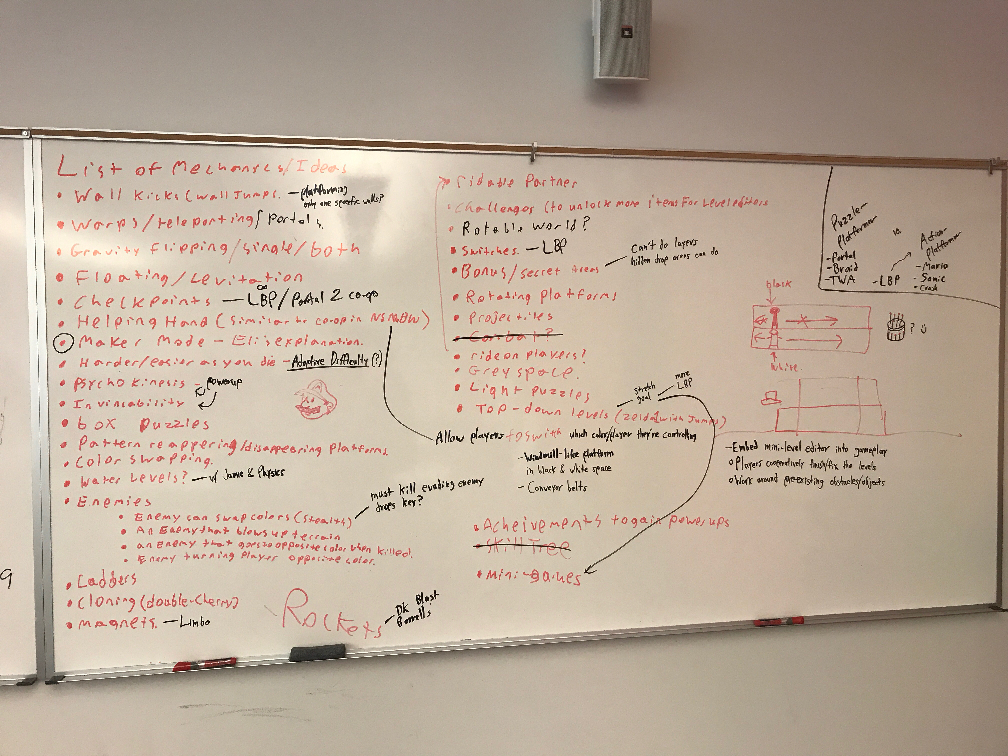 List of Mechanics/Ideas
• Wall Kicks (wall Jumps. - platforming
only one specific walls?
• Warps/teleporting/Portals.
• Gravity Flipping/single/both
• Floating/Levitation
• Checkpoints - LBP/Portal 2 co-op
• Helping Hand (similar to co-op in NSMBW)
• Maker Mode - Eli's explanation.
• Harder/easier as you die - Adaptive Difficulty (?)
• Psycho Kinesis - powerup
• Invincability
• box Puzzles
• Pattern reappering/disappearing Platforms.
• Color swapping.
• Water Levels? - w/ Jamie & Physics
• Enemies
• Enemy can swap colors (Stealth)
must kill evading enemy
drops key?
• An Enemy that blows up terrain
• an enemy that goes to opposite color when killed.
• Enemy turning Player opposite color.
• Ladders
• Cloning (double-Cherry)
• magnets. - Limbo
Rockets - DK Blast
Barrells
• ridable Partner
• Challenges (to unlock more items for level editers
• Rotable world?
• Switches. - LBP
• Bonus/secret Areas
Can't do layers
hidden drop areas can do
• Rotating Platforms
• Projectiles
• Combat?
• rideon players?
• Grey space.
• Light puzzles
• Top-down levels (Zelda (with Jumps)
stretch
goal
more
LBP
Allow players to switch which color/player they're controlling
- Windmill-like platform
in black & white space
- Conveyor belts
• Acheivements to gain powerups
• Skill Tree
• Mini-games
Puzzle-
Platformer
- Portal
- Braid
- TWA
Action
Platformer
- LBP
- Mario
- Sonic
- Crash
black
white
?
- Embed mini-level editor into gameplay
• Players cooperatively finish/fix the levels
• Work around pre-existing obstacles/objects
9